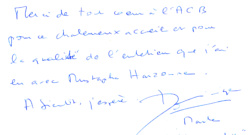 Merci de tout cœur à l'ACB
pour ce chaleureux accueil et pour
la qualité de l'entretien que j'ai
eu avec Mustapha Harzoune.
A bientôt, j'espère